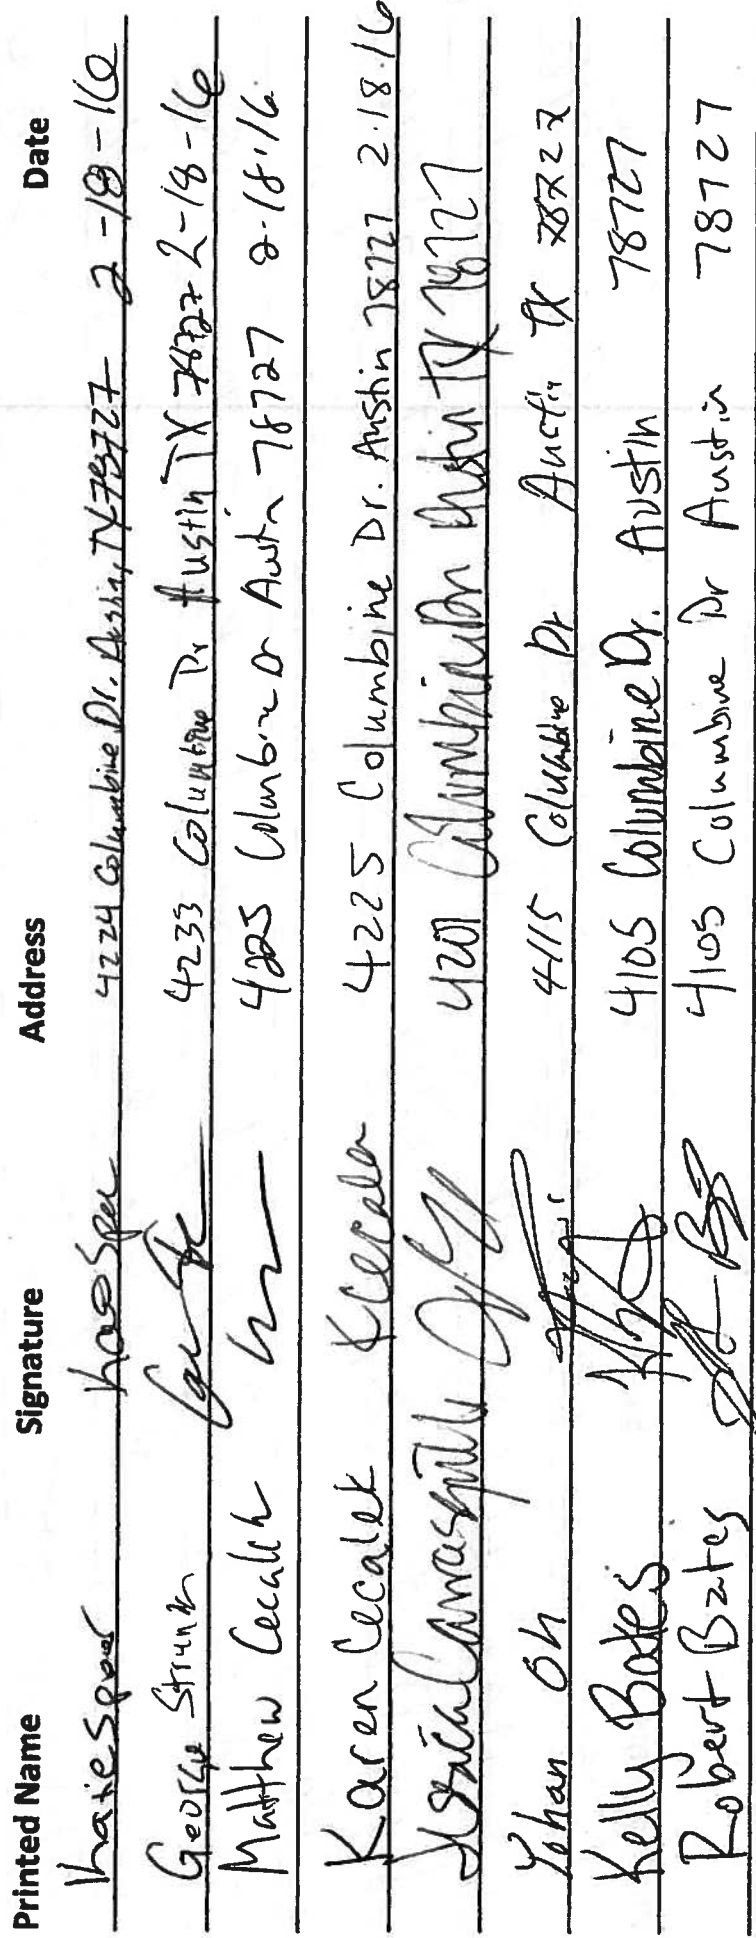 Printed Name Signature Address Date
Katie 4224 Columbine Dr. Austin, TX 78727 2-18-16
George 4233 Columbine Dr Austin TX 78727 2-18-16
Matthew Cecalek 4225 Columbine Dr Austin 78727 2-18-16
Karen Cecalek KCecalek 4225 Columbine Dr. Austin 78727 2.18.16
Jessica Carrasquillo 4201 Columbine Dr Austin TX 78727
Yohan Oh 4115 Columbine Dr Austin TX 78727
Kelly Bates 4105 Columbine Dr. Austin 78727
Robert Bates 4105 Columbine Dr Austin 78727